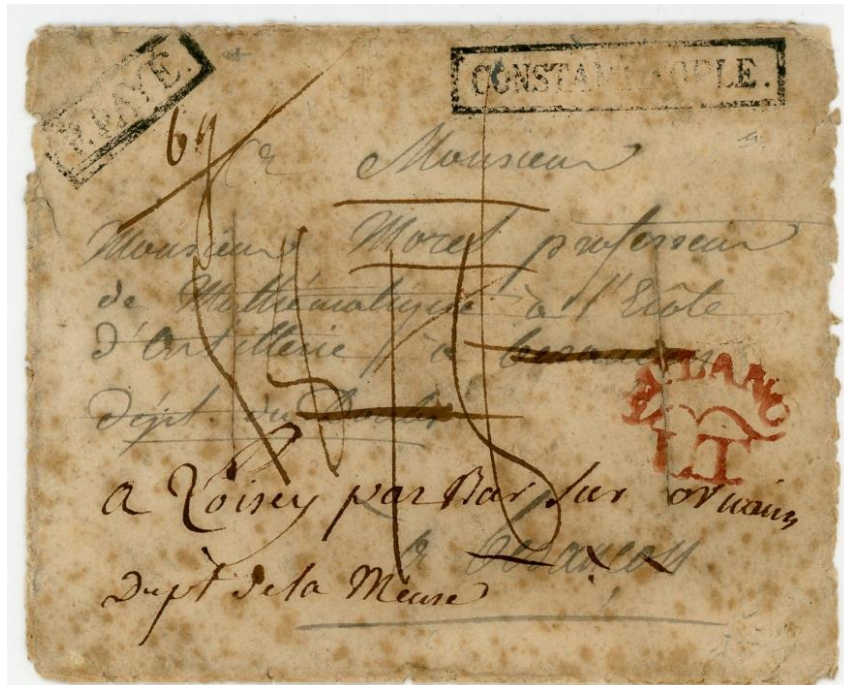 P. PAYÉ.
CONSTANTINOPLE.
Monsieur
Monsieur Morel professeur
de Mathématique à l'Ecole
d'Artillerie à besançon
Dépt. du Doubs
MILANO
L.T.
a Loisey par Bar sur ornain
à besançon
Dept de la Meuse